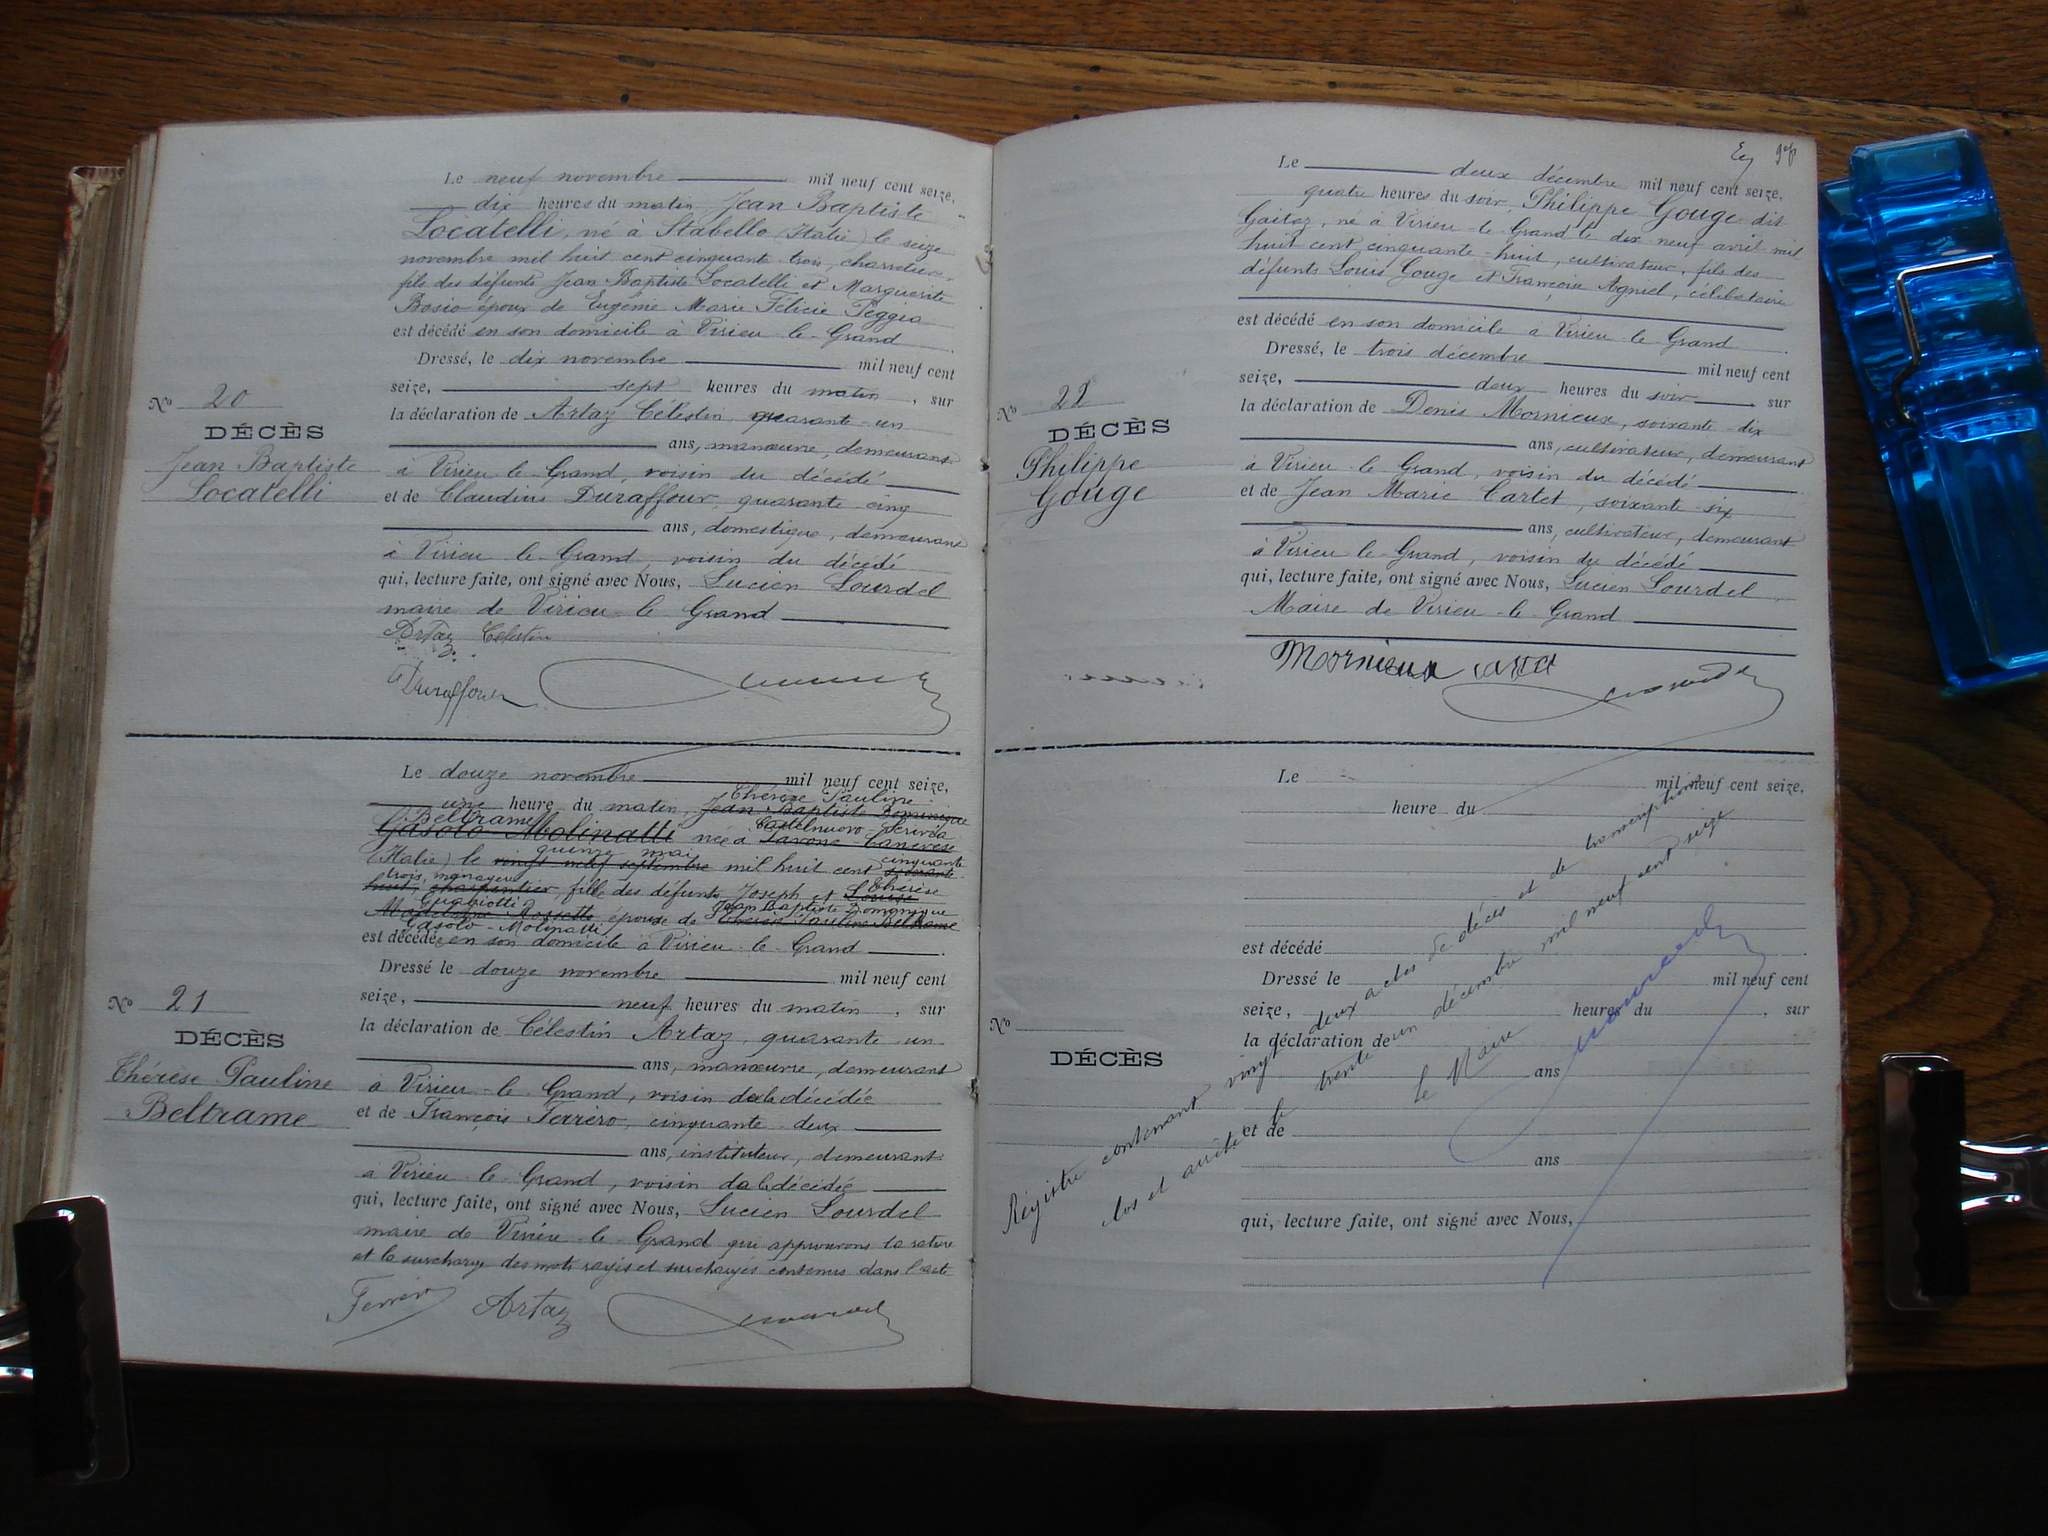 Le neuf novembre mil neuf cent seize,
dix heures du matin Jean Baptiste
Locatelli, né à Stabello (Italie) le seize
novembre mil huit cent cinquante trois, charretier,
fils des défunts Jean Baptiste Locatelli et Marguerite
Bosio époux de Eugénie Marie Félicie Peggra
est décédé en son domicile à Virieu-le-Grand
Dressé, le dix novembre mil neuf cent
seize, sept heures du matin, sur
la déclaration de Artaz Célestin, quarante-un
ans, manœuvre, demeurant
à Virieu-le-Grand, voisin du décédé
et de Claudius Duraffour, quarante cinq
ans, domestique, demeurant
à Virieu-le-Grand, voisin du décédé
qui, lecture faite, ont signé avec Nous, Lucien Lourdel
maire de Virieu-le-Grand
Artaz Célestin
Duraffour
No 20
DÉCÈS
Jean Baptiste
Locatelli
Le douze novembre mil neuf cent seize,
Thérèse Pauline
une heure du matin, Jean Baptiste Dominique
Beltrame Castelnuovo-Scrivia
Gasoto-Molinatti née à Pavone Canavese
quinze mai cinquante
(Italie) le vingt neuf septembre mil huit cent soixante
trois, ménagère Thérèse
huit, charpentier, fille des défunts Joseph et Louise
Guabiotti Jean Baptiste Dominique
Madeleine Rossetto épouse de Thérèse Pauline Beltrame
Gasoto-Molinatti
est décédée en son domicile à Virieu-le-Grand
Dressé le douze novembre mil neuf cent
seize, neuf heures du matin, sur
la déclaration de Célestin Artaz, quarante un
ans, manœuvre, demeurant
à Virieu-le-Grand, voisin de la décédée
et de François Ferréro, cinquante-deux
ans, instituteur, demeurant
à Virieu-le-Grand, voisin de la décédée
qui, lecture faite, ont signé avec Nous, Lucien Lourdel
maire de Virieu-le-Grand qui approuvons la rature
et la surcharge des mots rayés et surchargés contenus dans l'acte
Ferrero Artaz
No 21
DÉCÈS
Thérèse Pauline
Beltrame
Le deux décembre mil neuf cent seize,
quatre heures du soir, Philippe Gouge dit
Gaitaz, né à Virieu-le-Grand le dix neuf avril mil
huit cent cinquante-huit, cultivateur, fils des
défunts Louis Gouge et Françoise Agniel, célibataire
est décédé en son domicile a Virieu-le-Grand
Dressé, le trois décembre mil neuf cent
seize, deux heures du soir, sur
la déclaration de Denis Mornieux, soixante-dix
ans, cultivateur, demeurant
à Virieu-le-Grand, voisin du décédé
et de Jean Marie Cartet, soixante-six
ans, cultivateur, demeurant
à Virieu-le-Grand, voisin du décédé
qui, lecture faite, ont signé avec Nous, Lucien Lourdel
Maire de Virieu-le-Grand
Mornieux
No 22
DÉCÈS
Philippe
Gouge
Le mil neuf cent seize,
heure du
est décédé
Dressé le mil neuf cent
seize, heures du , sur
la déclaration de
ans
et de
ans
qui, lecture faite, ont signé avec Nous,
No
DÉCÈS
Registre contenant vingt deux actes de décès et de transcription
clos et arrêté le trente-un décembre mil neuf cent seize
Le Maire